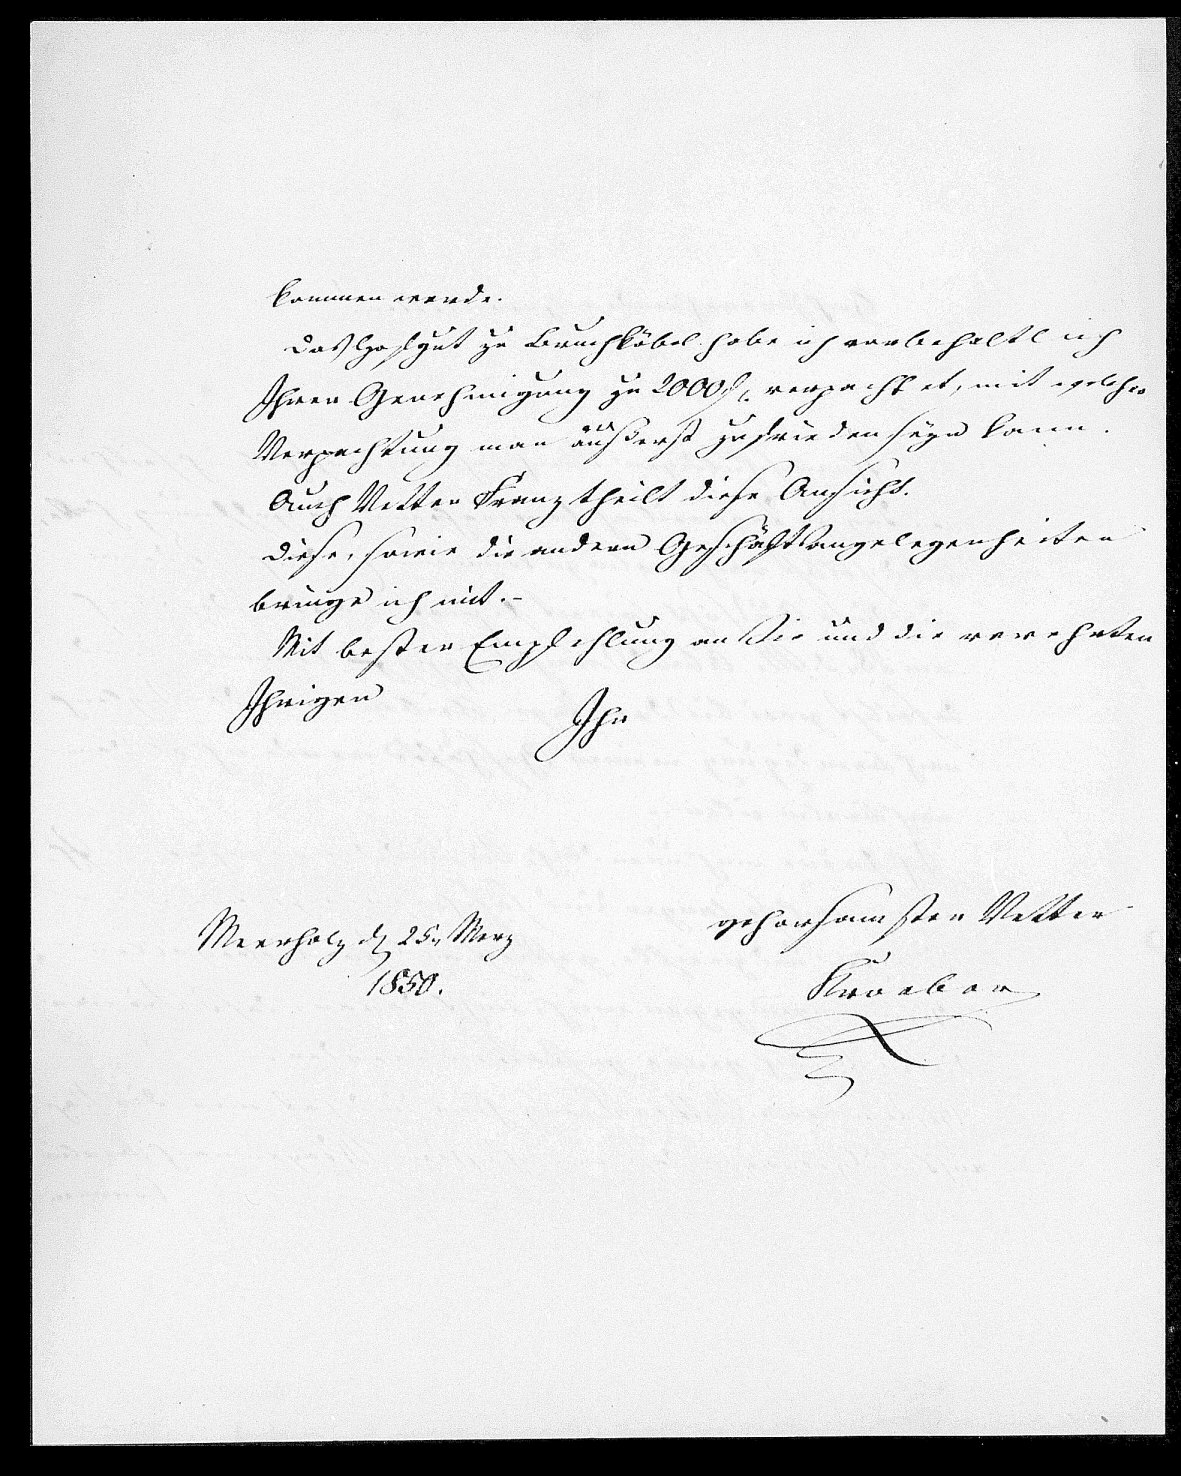 kommen werde.
Das Hofgut zu Bruchköbel habe ich vorbehaltlich
Ihrer Genehmigung zu 2000 f. verpachtet, mit welcher
Verpachtung man äußerst zufrieden seyn kann.
Auch Vetter Franz theilt diese Ansicht.
Diese, sowie die andern Geschäftsangelegenheiten
bringe ich mit.-
Mit bester Empfehlung an Sie und die verehrten
Ihrigen
Ihr
gehorsamster Vetter
Meerholz d 25n Merz
1850.
Kroeber